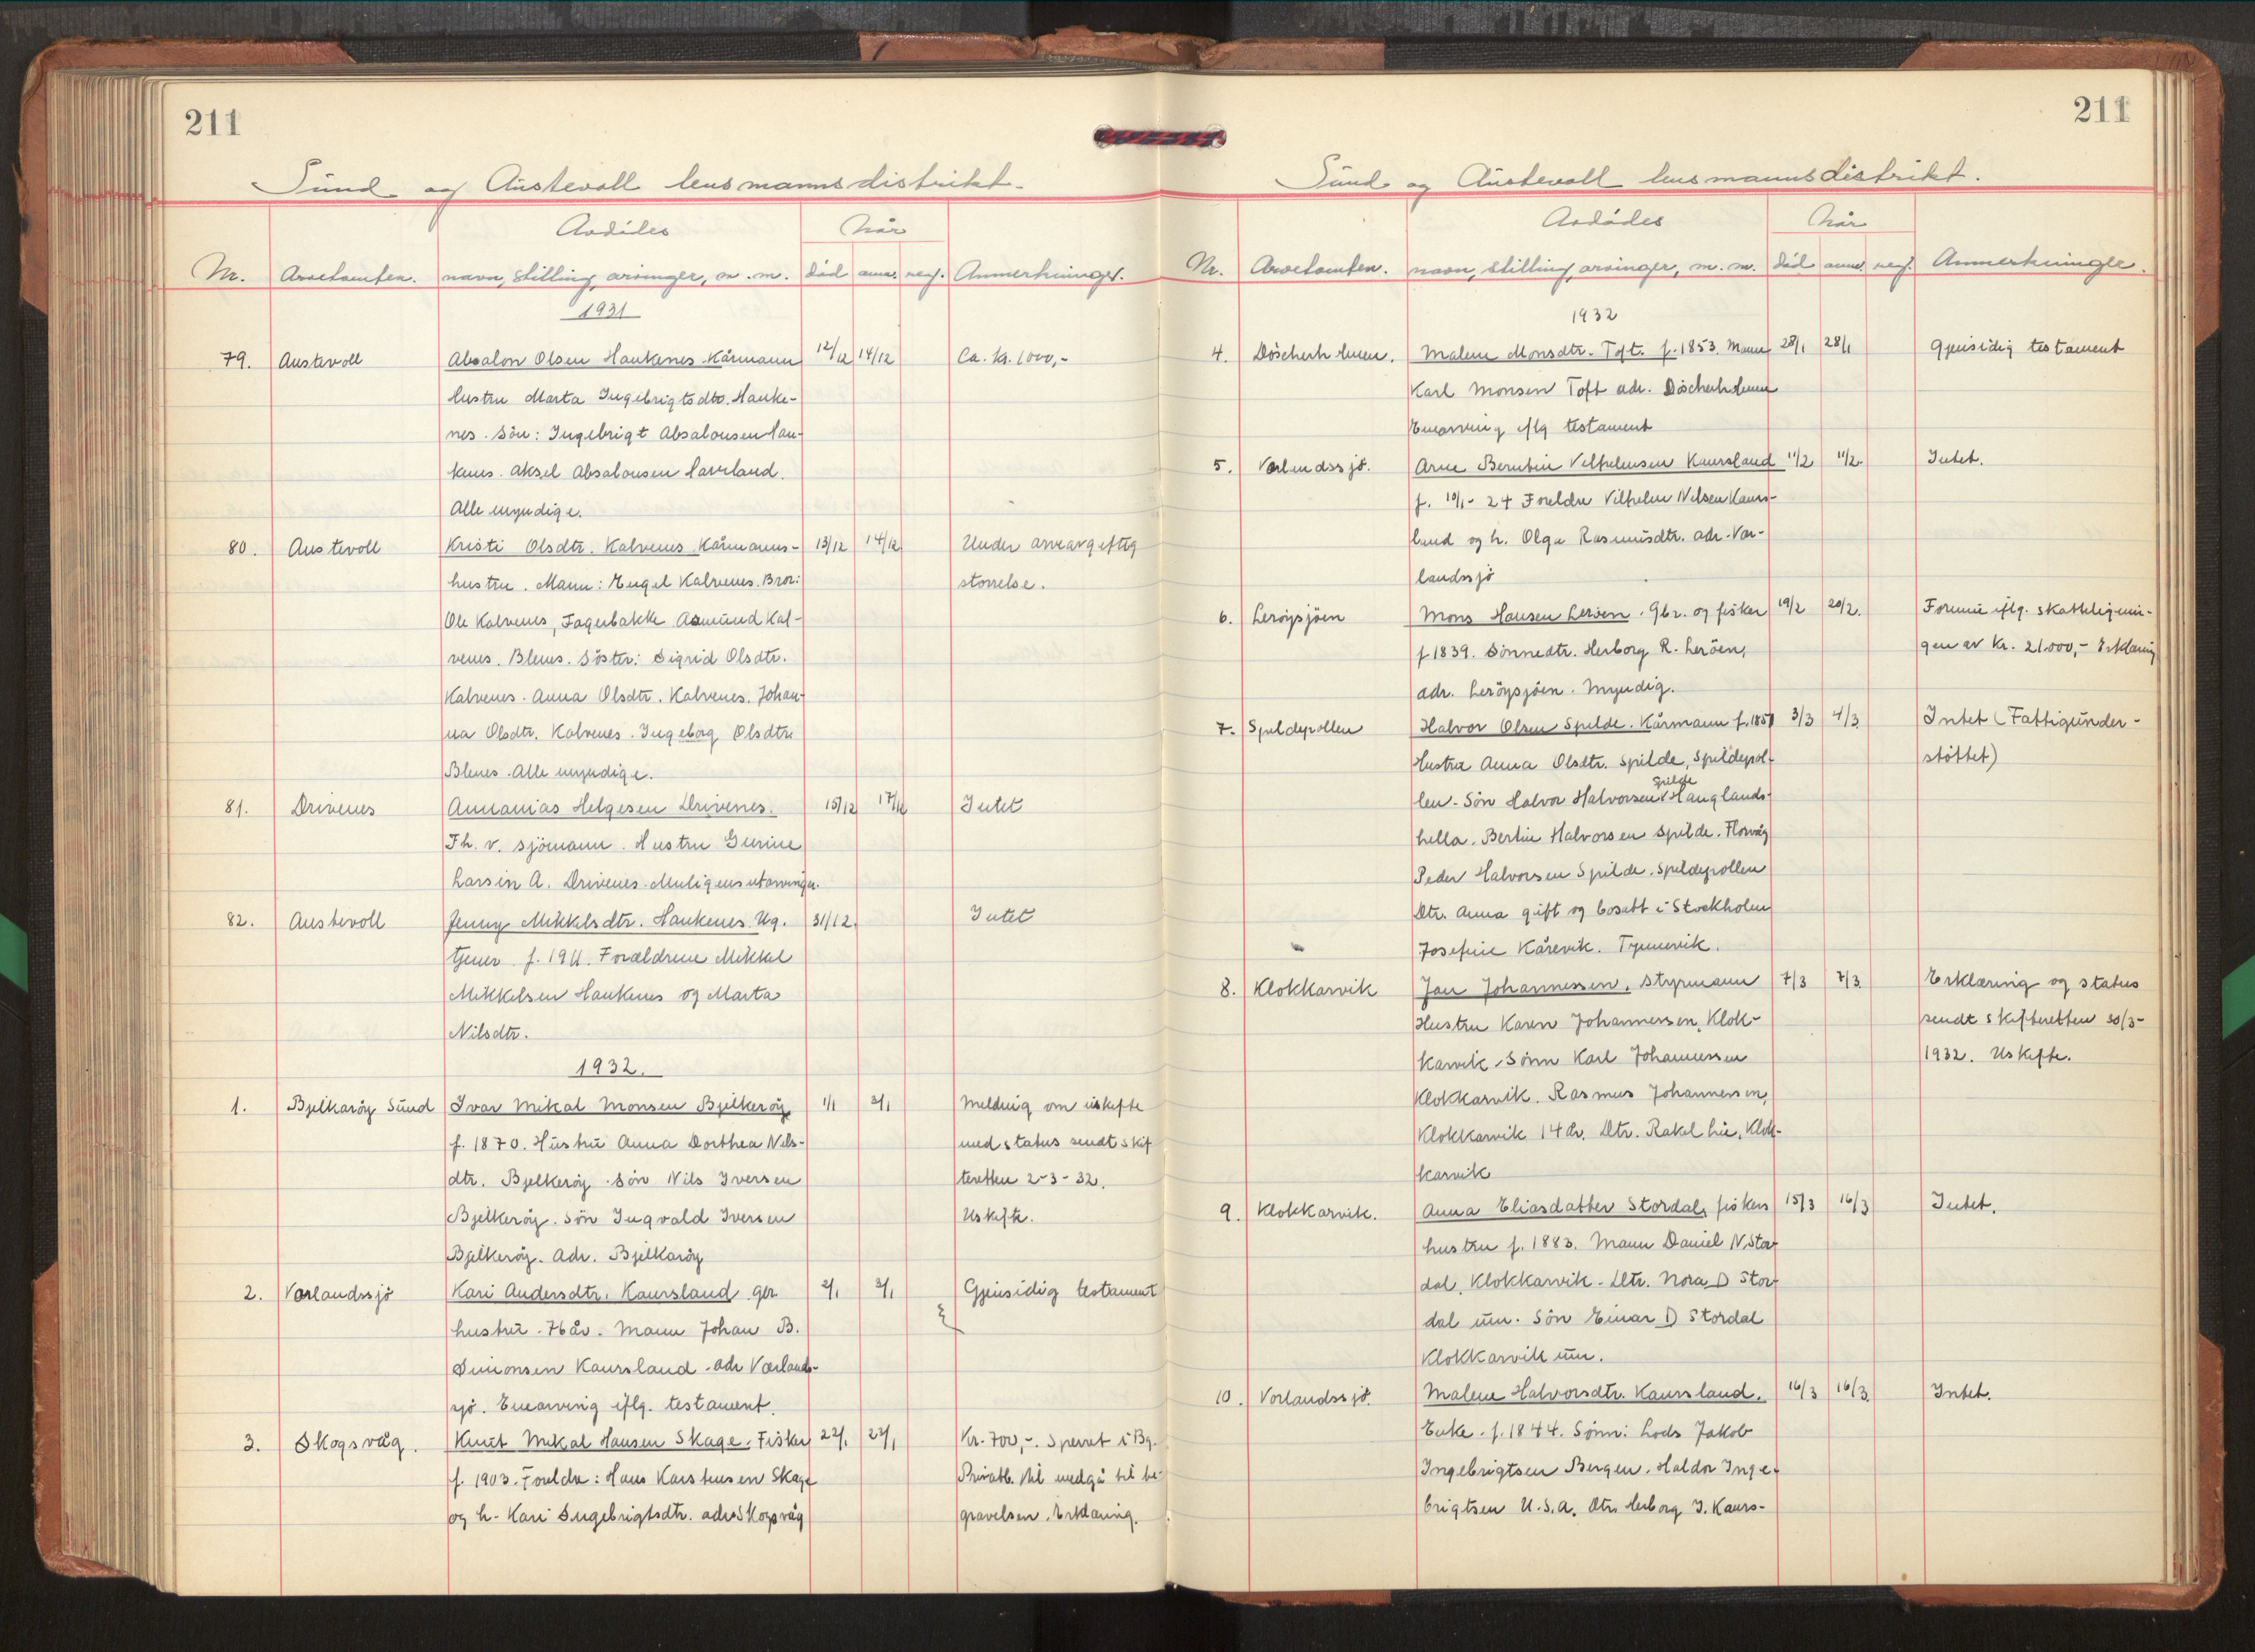 211
Sund og Austevoll lensmannsdistrikt.
Avdødes
Når
Nr. Arvetomten. navn, stilling, arvinger, m.m. død anm. reg. Anmerkninger.
1931
79. Austevoll Absalon Olsen Haukenes Kårmann 12/12 14/12 Ca. kr. 1000,-
hustru Marta Ingebrigtsdtr. Hauke-
nes. Sön: Ingebrigt Absalonsen Hau-
kenes. Aksel Absalonsen
Alle myndige.
80. Austevoll Kristi Olsdtr. Kalvenes Kårmanns- 13/12 14/12 Under arveavgiftig
hustru. Mann: Engel Kalvenes. Bror: storrelse.
Ole Kalvenes, Fagerbakke Asmund Kal-
venes. Blenes. Söster: Sigrid Olsdtr.
Kalvenes. Anna Olsdtr. Kalvenes. Johan-
na Olsdtr. Kalvenes. Ingeborg Olsdtr.
Blenes. Alle myndige.
81. Drivenes Annanias Helgesen Drivenes. 15/12 17/12 Intet
Fh. v. sjömann. Hustru Gurine
Larsin A. Drivenes. Muligens utarvinger.
82. Austevoll Jenny Mikkelsdtr. Haukenes. Ug. 31/12. Intet
tjener f. 1911. Forældrene Mikkel
Mikkelsen Haukenes og Marta
Nilsdtr.
1932.
1. Bjelkaröy Sund Ivar Mikal Monsen Bjelkeröy 1/1 2/1 Melding om uskifte
f. 1870. Hustru Anna Dorthea Nils- med status sendt skif
dtr. Bjelkeröy. Sön Nils Iversen teretten 2-3-32.
Bjelkeröy. Sön Ingvald Iversen Uskifte.
Bjelkeröy. Adr. Bjelkaröy
2. Vorlandssjö Kari Andersdtr. Kaursland gbr. 2/1 2/1 Gjensidig testament
hustru. 76 år. Mann Johan B.
Simonsen Kaursland. adr Vorlands-
sjö. Enearving iflg. testament.
3. Skogsvåg. Knut Mikal Hansen Skage. Fisker 22/1 23/1 Kr. 700,-. Sperret i Bg.
f. 1903. Foreldre: Hans Karstensen Skage Privatb. Vil medgå til be-
og h. Kari Ingebrigtsdtr. adr. Skogsvåg gravelsen. Erklæring.
211
Sund og Austevoll lensmannsdistrikt.
Avdødes
Når
Nr. Arvetomten. navn, stilling, arvinger, m.m. død anm. reg. Anmerkninger.
1932
4. Malene Monsdtr. Toft. f. 1853. Mann 28/1 28/1 Gjensidig testament
Karl Monsen Toft adr.
Enearving iflg testament
5. Vorlandssjö. Arne Berntin Vilhelmsen Kaursland 11/2 11/2. Intet.
f. 10/1-24 Foreldre Vilhelm Nilsen Kaurs-
land og h. Olga Rasmusdtr. adr. Vor-
landssjö
6. Leröysjöen Mons Hansen Leröen. Gbr. og fisker 19/2 20/2. Formue iflg. skattlignin-
f 1839. Sönnedtr. Herborg R. Leröen, gen av kr. 21.000,- Erklæring
adr. Leröysjöen. Myndig.
7. Spildepollen Halvor Olsen Spilde. Kårmann f. 1851 3/3 4/3 Intet (Fattigunder-
Hustru Anna Olsdtr. Spilde, Spildepol- stöttet)
Spilde
len. Sön Halvor Halvorsen Hauglands-
hella. Bertin Halvorsen Spilde. Florvåg
Peder Halvorsen Spilde. Spildepollen
Dtr. Anna gift og bosatt i Stockholm
Josefine Kårevik. Tynnervik.
8. Klokkarvik Jan Johannessen, styrmann 7/3 7/3. Erklæring og status
Hustru Karen Johannessen, Klok- sendt skifteretten 30/3-
karvik. Sönn Karl Johannessen 1932. Uskifte.
Klokkarvik. Rasmus Johannessen,
Klokkarvik 14 år. Dtr. Rakel Lie, Klok-
karvik
9. Klokkarvik. Anna Eliasdatter Stordal, fiskers 15/3 16/3 Intet.
hustru f. 1883. Mann Daniel N. Stor
dal, Klokkarvik. Dtr. Nora D Stor-
dal um. Sön Einar D Stordal
Klokkarvik um.
10. Vorlandssjö. Malene Halvorsdtr. Kaursland. 16/3 16/3. Intet.
Enke. f. 1844. Sönn: Lods Jakob
Ingebrigtsen Bergen. Haldor Inge-
brigtsen U.S.A. Dtr. Herborg I. Kaurs-